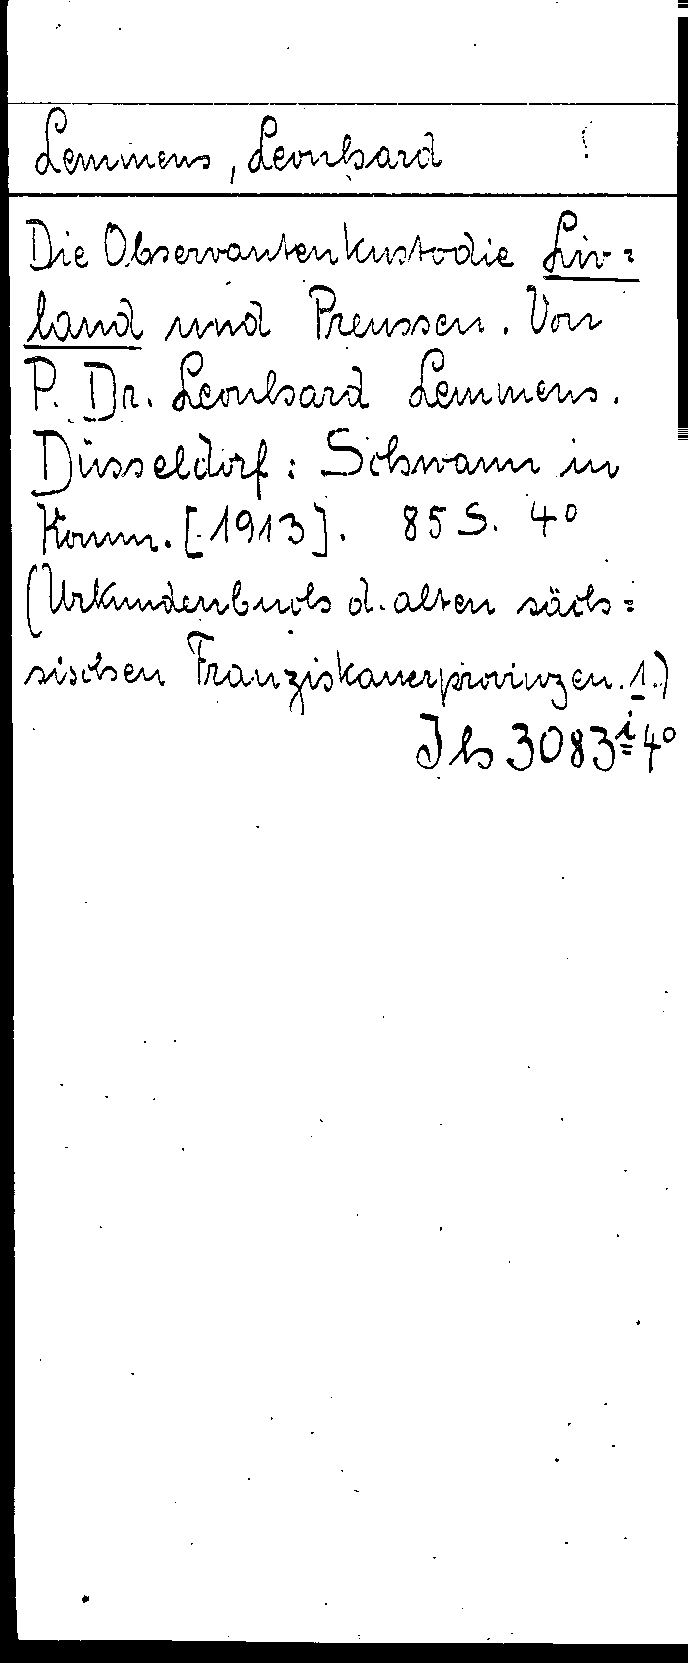 Lemmens, Leonhard
Die Observantenkustodie Liv=
land und Preussen. Von
P. Dr. Leonhard Lemmens.
Düsseldorf: Schwann in
Komm. [1913]. 85 S. 4°
(Urkundenbuch d. alten säch=
sischen Franziskanerprovinzen. 1.)
Ih 3083ⁱ 4°